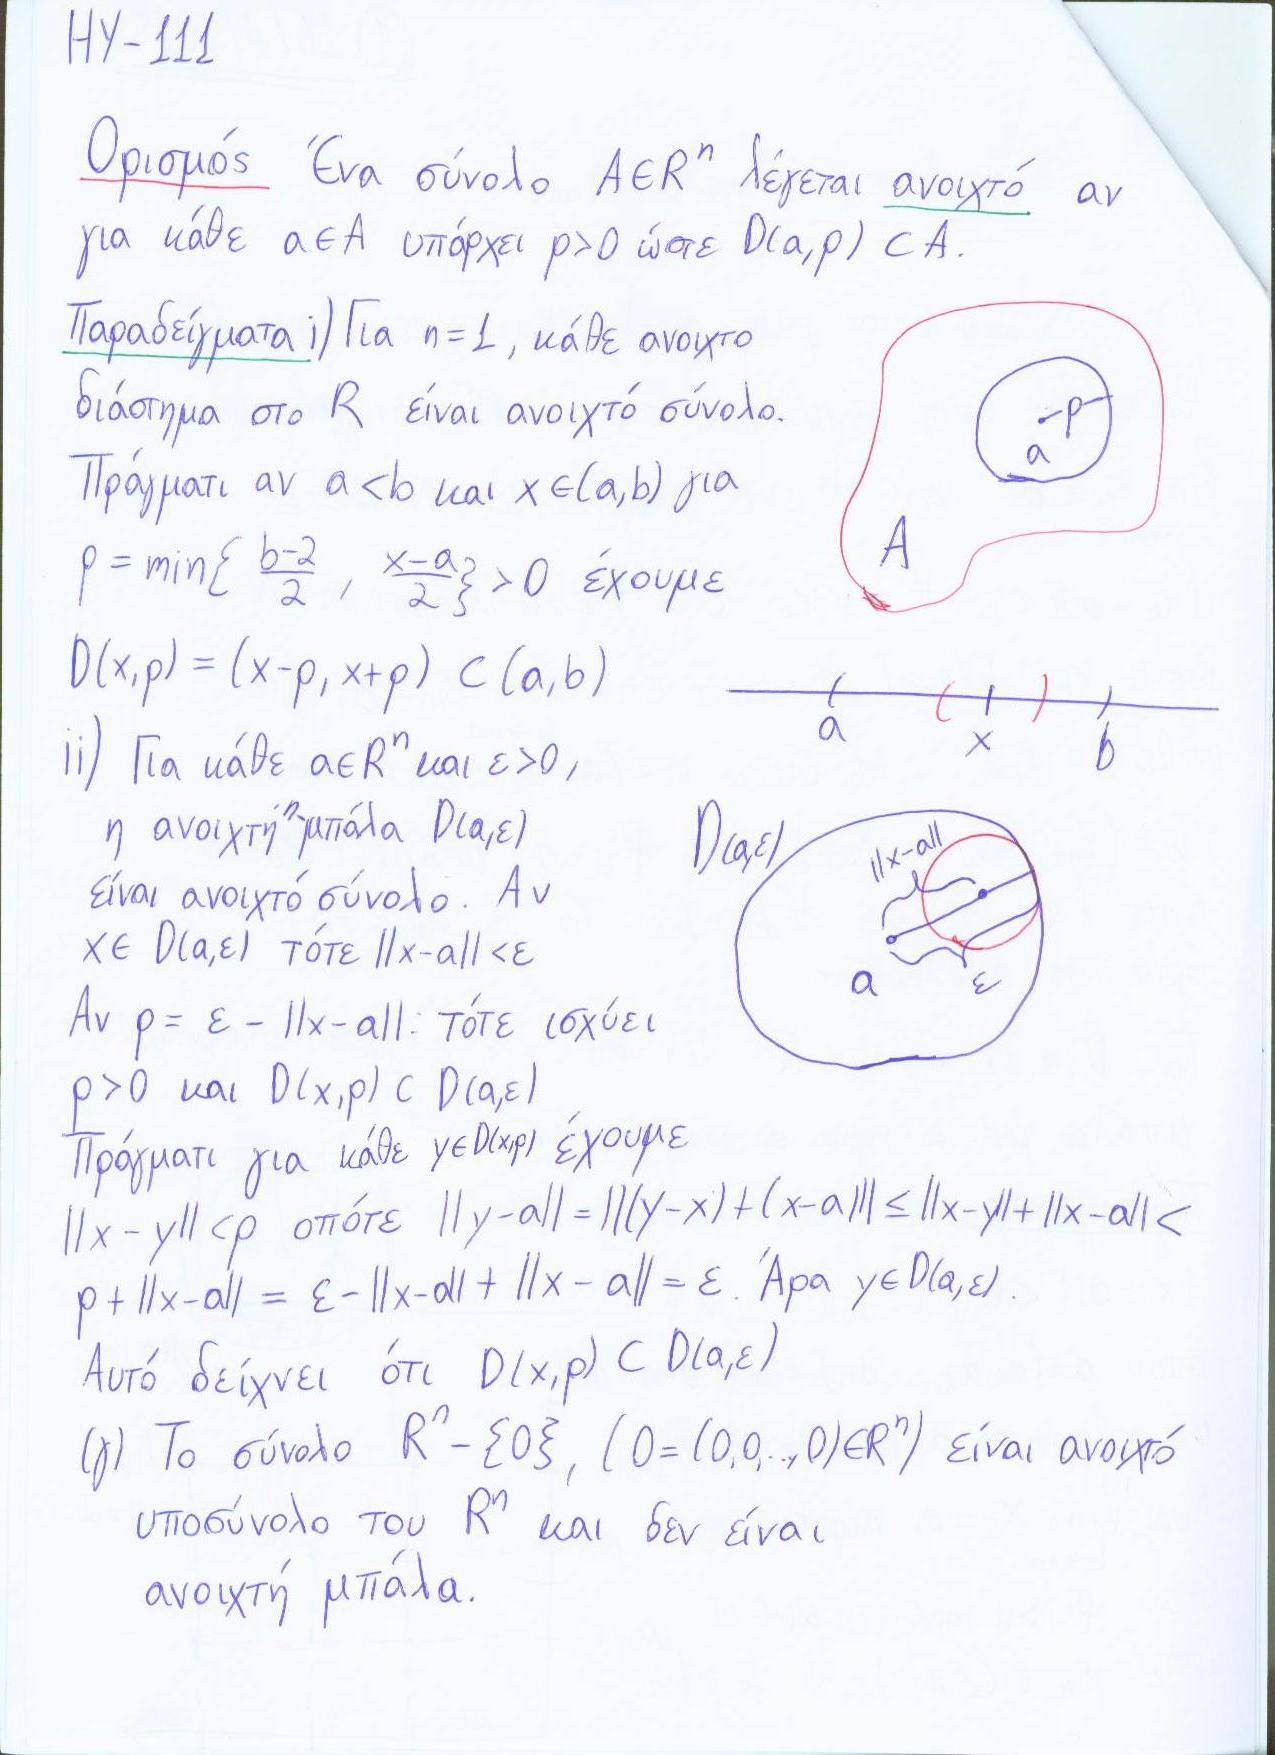 ΗΥ-111
Ορισμός Ένα σύνολο A∈Rⁿ λέγεται ανοιχτό αν
για κάθε a∈A υπάρχει ρ>0 ώστε D(a,ρ) ⊂ A.
Παραδείγματα i) Για n=1, κάθε ανοιχτο
διάστημα στο R είναι ανοιχτό σύνολο.
Πράγματι αν a<b και x∈(a,b) για
ρ = min{ (b-2)/2 , (x-a)/2 } > 0 έχουμε
D(x,ρ) = (x-ρ, x+ρ) ⊂ (a,b)
ρ
a
A
a
x
b
ii) Για κάθε a∈Rⁿ και ε>0,
η ανοιχτή "μπάλα D(a,ε)
είναι ανοιχτό σύνολο. Αν
x∈ D(a,ε) τότε ||x-a|| <ε
Αν ρ= ε - ||x-a||: τότε ισχύει
ρ>0 και D(x,ρ) ⊂ D(a,ε)
D(a,ε)
||x-a||
a
ε
Πράγματι για κάθε y∈D(x,ρ) έχουμε
||x-y|| <ρ οπότε ||y-a|| = ||(y-x)+(x-a)|| ≤ ||x-y||+||x-a|| <
ρ+||x-a|| = ε-||x-a||+||x-a|| = ε. Άρα y∈D(a,ε).
Αυτό δείχνει ότι D(x,ρ) ⊂ D(a,ε)
(γ) Το σύνολο Rⁿ-{0}, (0=(0,0,..,0)∈Rⁿ) είναι ανοιχτό
υποσύνολο του Rⁿ και δεν είναι
ανοιχτή μπάλα.